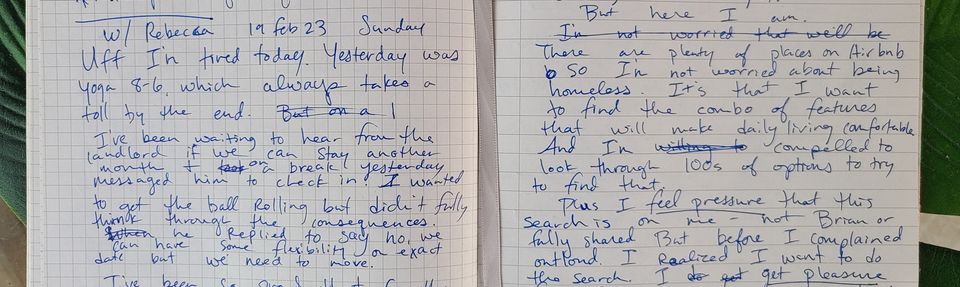 w/ Rebecca 19 Feb 23 Sunday
Uff I'm tired today. Yesterday was
yoga 8-6. which always takes a
toll by the end. But on a I
I've been waiting to hear from the
landlord if we can stay another
month + on a break yesterday
messaged him to check in. I wanted
to get the ball Rolling but didn't fully
think through the consequences.
When he Replied to say no, we
can have some flexibility on exact
date but we need to move.
But here I am.
I'm not worried that we'll be
There are plenty of places on Airbnb
So I'm not worried about being
homeless. It's that I want
to find the combo of features
that will make daily living comfortable.
And I'm willing to compelled to
look through 100s of options to try
to find that.
Plus I feel pressure that this
search is on me - not Brian or
fully shared. But before I complained
outloud. I Realized I want to do
the search. I do get pleasure